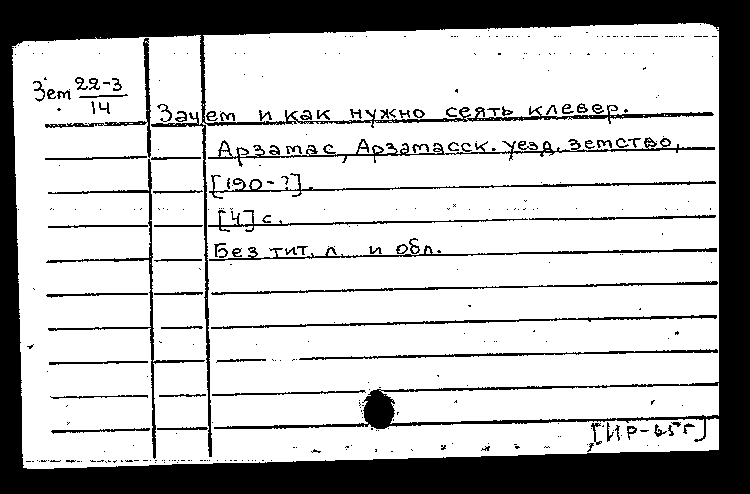 Зем 22-3/14
Зачем и как нужно сеять клевер.
Арзамас, Арзамасск. уезд. земство,
[190-?].
[4] с.
Без тит. л. и обл.
[ИР-65г]